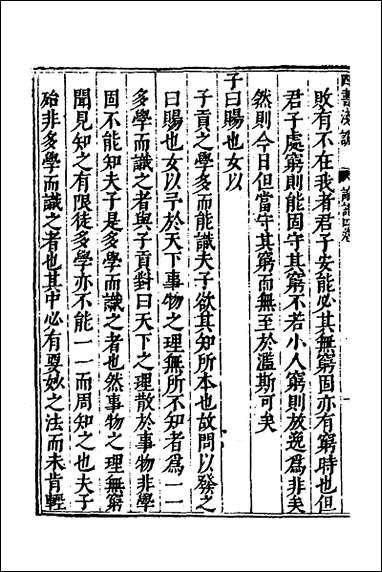 四書淺説 論語卷
敗有不在我者君子安能必其無窮固亦有窮時也但
君子處窮則能固守其窮不若小人窮則放逸爲非矣
然則今日但當守其窮而無至於濫斯可矣
子曰賜也女以
子貢之學多而能識夫子欲其知所本也故問以發之
曰賜也女以予於天下事物之理無所不知者爲一一
多學而識之者與子貢對曰天下之理散於事物非學
固不能知夫子是多學而識之者也然事物之理無窮
聞見知之有限徒多學亦不能一一而周知之也夫子
殆非多學而識之者也其中必有要妙之法而未肯輕